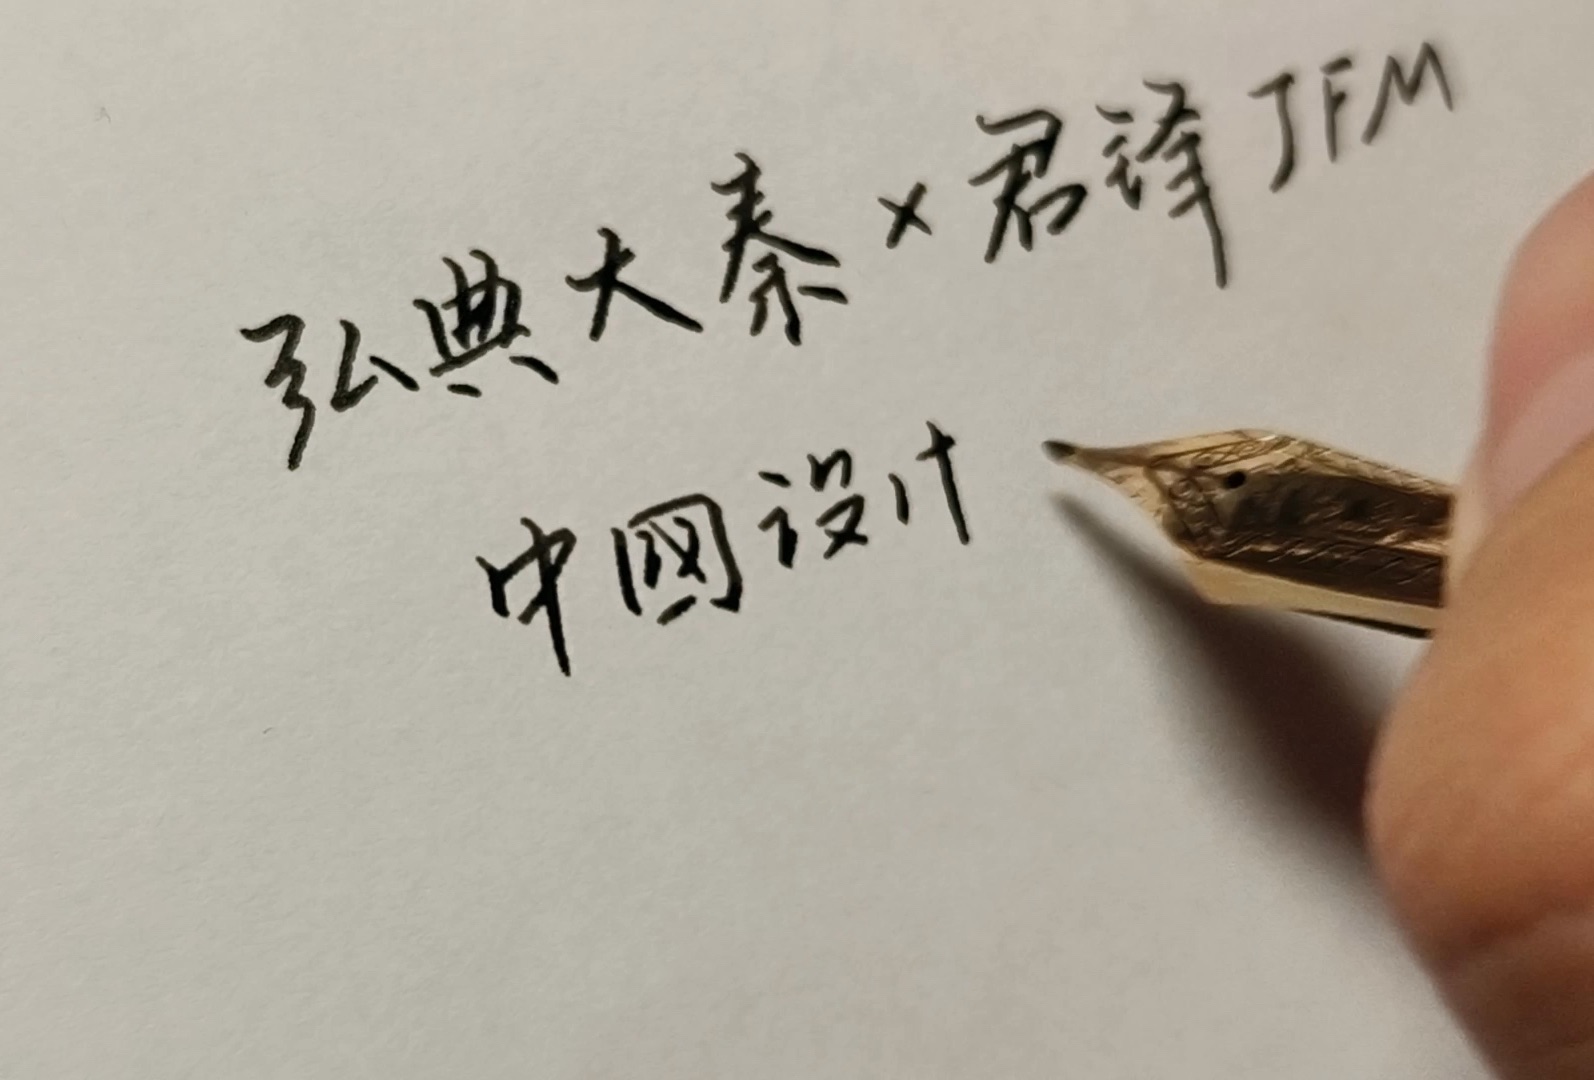 弘典大秦×君锋JFM
中國设计